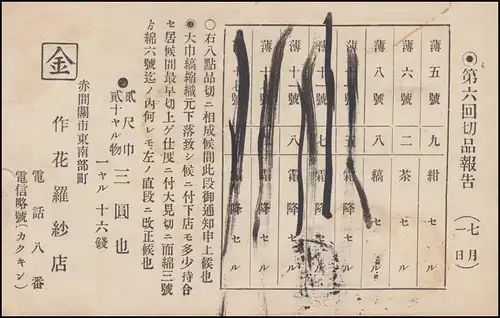 ◉第六回切品報告
(七月一日)
薄五號 九 紺セル
薄六號 二 茶セル
薄八號 八 縞セル
薄 五 霜降セル
薄十 七 霜降セル
薄 八 霜降セ
薄 霜降セル
薄十七號 降セル
○右八點品切ニ相成候間此段御通知申上候也
●大巾縞綿織元下落致シ候ニ付下店モ多少持合
セ居候間最早切上ゲ仕度ニ付大見切ニ而綿三號
ゟ綿六號迄ノ内何レモ左ノ直段ニ改正候也
●貳尺巾 三圓也
貳十ヤル物
一ヤル 十六錢
金
赤間關市東南部町
作花羅紗店
電話八番
電信略號(カクキン)